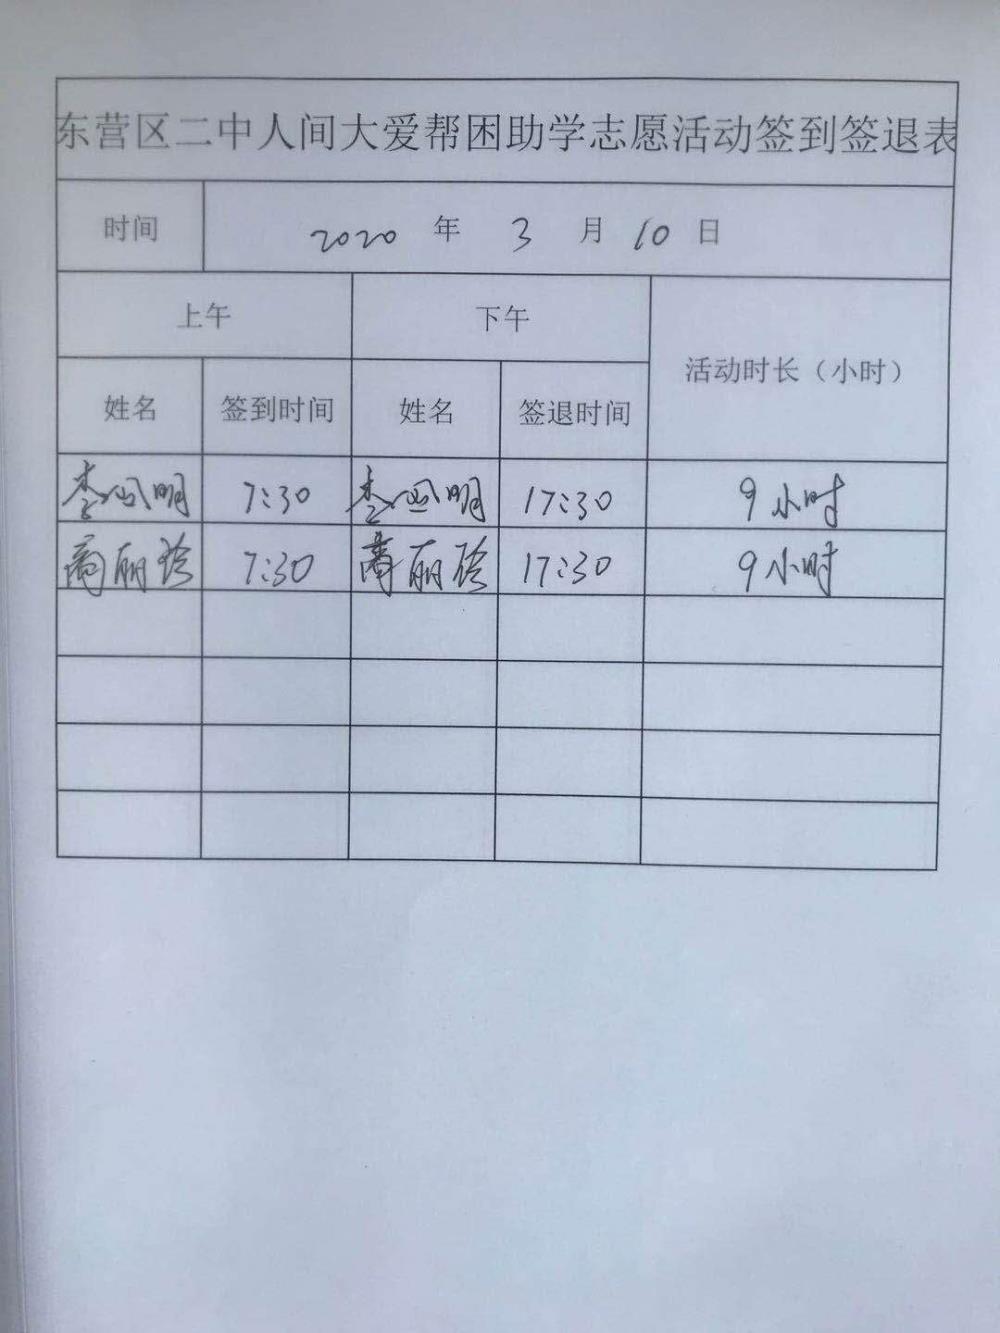 东营区二中人间大爱帮困助学志愿活动签到签退表
时间 2020 年 3 月 10 日
上午 下午 活动时长（小时）
姓名 签到时间 姓名 签退时间
7:30 17:30 9小时
丽 7:30 丽 17:30 9小时